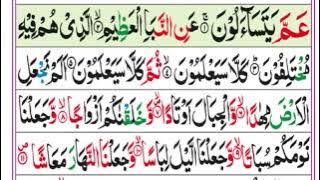 عَمَّ يَتَسَآءَلُوْنَ ۚ﴿۱﴾ عَنِ النَّبَاِ الْعَظِيْمِ ۙ﴿۲﴾ الَّذِىْ هُمْ فِيْهِ
مُخْتَلِفُوْنَ ؕ﴿۳﴾ كَلَّا سَيَعْلَمُوْنَ ۙ﴿۴﴾ ثُمَّ كَلَّا سَيَعْلَمُوْنَ ﴿۵﴾ اَلَمْ نَجْعَلِ
الْاَرْضَ مِهٰدًا ۙ﴿۶﴾ وَّالْجِبَالَ اَوْتَادًا ۪ۙ﴿۷﴾ وَّخَلَقْنٰكُمْ اَزْوَاجًا ۙ﴿۸﴾ وَّجَعَلْنَا
نَوْمَكُمْ سُبَاتًا ۙ﴿۹﴾ وَّجَعَلْنَا الَّيْلَ لِبَاسًا ۙ﴿۱۰﴾ وَّجَعَلْنَا النَّهَارَ مَعَاشًا ۪﴿۱۱﴾